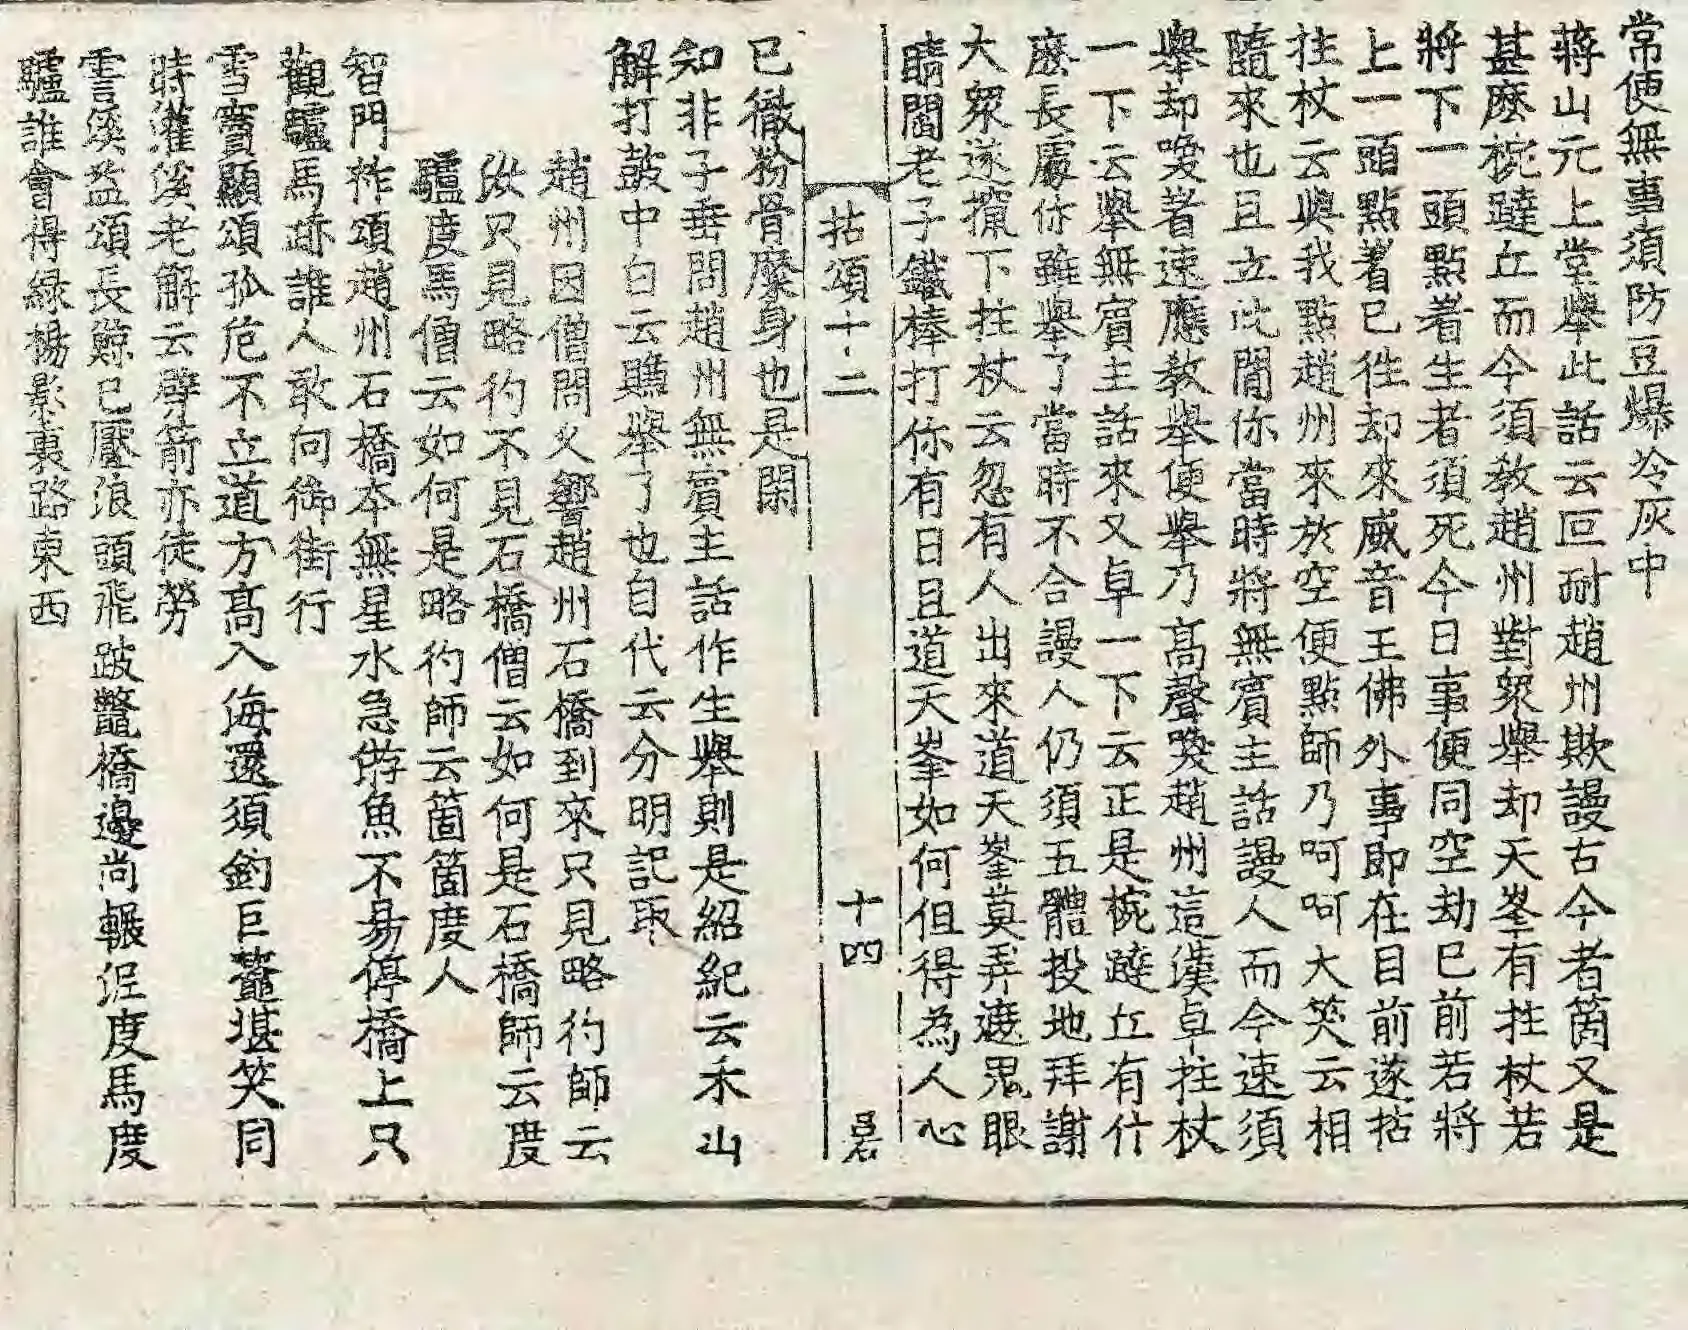 常便無事須防豆爆冷灰中
蔣山元上堂舉此話云叵耐趙州欺謾古今者箇又是
甚麽椀躂丘而今須敎趙州對衆舉却天峯有拄杖若
將下一頭點着生者須死今日事便同空劫已前若將
上一頭點着已徃却來威音王佛外事即在目前遂拈
拄杖云與我點趙州來於空便點師乃呵呵大笑云相
隨來也且立此間你當時將無賓主話謾人而今速須
舉却喚着速應敎舉便舉乃高聲喚趙州這漢卓拄杖
一下云舉無賓主話來又卓一下云正是椀躂丘有什
麽長處你雖舉了當時不合謾人仍須五體投地拜謝
大衆遂攛下拄杖云忽有人出來道天峯莫弄遮鬼眼
睛閻老子鐵棒打你有日且道天峯如何伹得為人心
拈頌十二　十四　呂石
已徹粉骨糜身也是閑
知非子垂問趙州無賓主話作生舉則是紹紀云禾山
解打鼓中白云賺舉了也自代云分明記取
趙州因僧問乆響趙州石橋到來只見略彴師云
汝只見略彴不見石橋僧云如何是石橋師云度
驢度馬僧云如何是略彴師云箇箇度人
智門祚頌趙州石橋本無星水急游魚不易停橋上只
觀驢馬跡誰人敢向御街行
雪竇顯頌孤危不立道方高入海還須釣巨鼇堪笑同
時灌溪老解云劈箭亦徒勞
霅溪益頌長鯨已壓浪頭飛跛鼈橋邊尚輾泥度馬度
驢誰會得緑楊影裏路東西